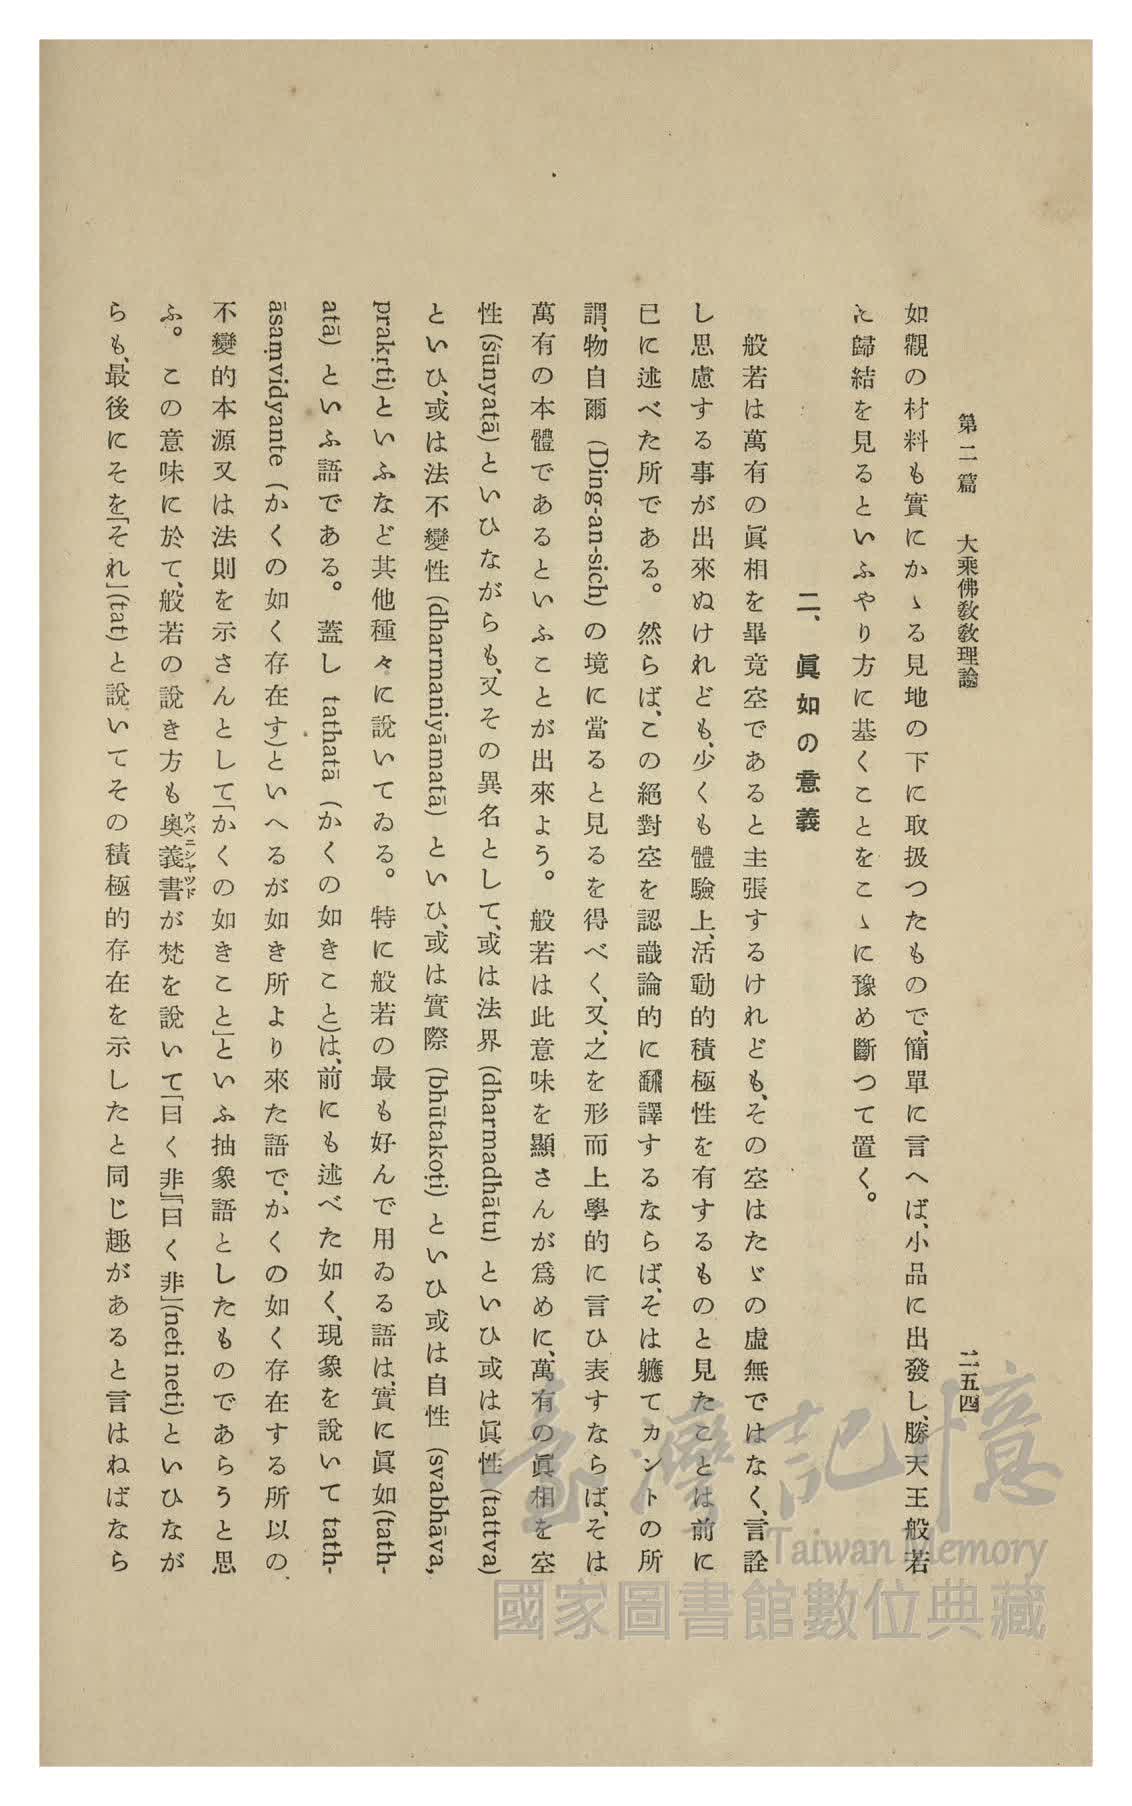 第二篇　大乘佛敎敎理論　二五四
如觀の材料も實にかゝる見地の下に取扱つたもので、簡單に言へば、小品に出發し、勝天王般若
に歸結を見るといふやり方に基くことをこゝに豫め斷つて置く。
二、眞如の意義
般若は萬有の眞相を畢竟空であると主張するけれども、その空はたゞの虛無ではなく、言詮
し思慮する事が出來ぬけれども、少くも體驗上、活動的積極性を有するものと見たことは前に
已に述べた所である。然らば、この絕對空を認識論的に飜譯するならば、そは軈てカントの所
謂、物自爾 (Ding-an-sich) の境に當ると見るを得べく、又、之を形而上學的に言ひ表すならば、そは
萬有の本體であるといふことが出來よう。般若は此意味を顯さんが爲めに、萬有の眞相を空
性 (śūnyatā) といひながらも、又その異名として、或は法界 (dharmadhātu) といひ或は眞性 (tattva)
といひ、或は法不變性 (dharmaniyāmatā) といひ、或は實際 (bhūtakoṭi) といひ或は自性 (svabhāva,
prakṛti)といふなど其他種々に說いてゐる。特に般若の最も好んで用ゐる語は、實に眞如(tath-
atā) といふ語である。蓋し tathatā (かくの如きこと)は、前にも述べた如く、現象を說いて tath-
āsaṃvidyante (かくの如く存在す)といへるが如き所より來た語で、かくの如く存在する所以の
不變的本源又は法則を示さんとして「かくの如きこと」といふ抽象語としたものであらうと思
ふ。この意味に於て、般若の說き方も奧義書ウパニシヤツドが梵を說いて「曰く非」「曰く非」(neti neti) といひなが
らも、最後にそを「それ」(tat) と說いてその積極的存在を示したと同じ趣があると言はねばなら
臺灣記憶
Taiwan Memory
國家圖書館數位典藏